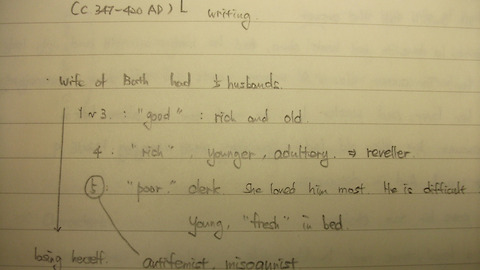 (C 347-420 AD) L writing.
· Wife of Bath had 5 husbands.
1~3. : "good" : rich and old
4. "rich". younger, adultery. ⇒ reveller.
5. : "poor." clerk She loved him most. He is difficult
young, "fresh" in bed.
losing herself. antifemist, misogynist